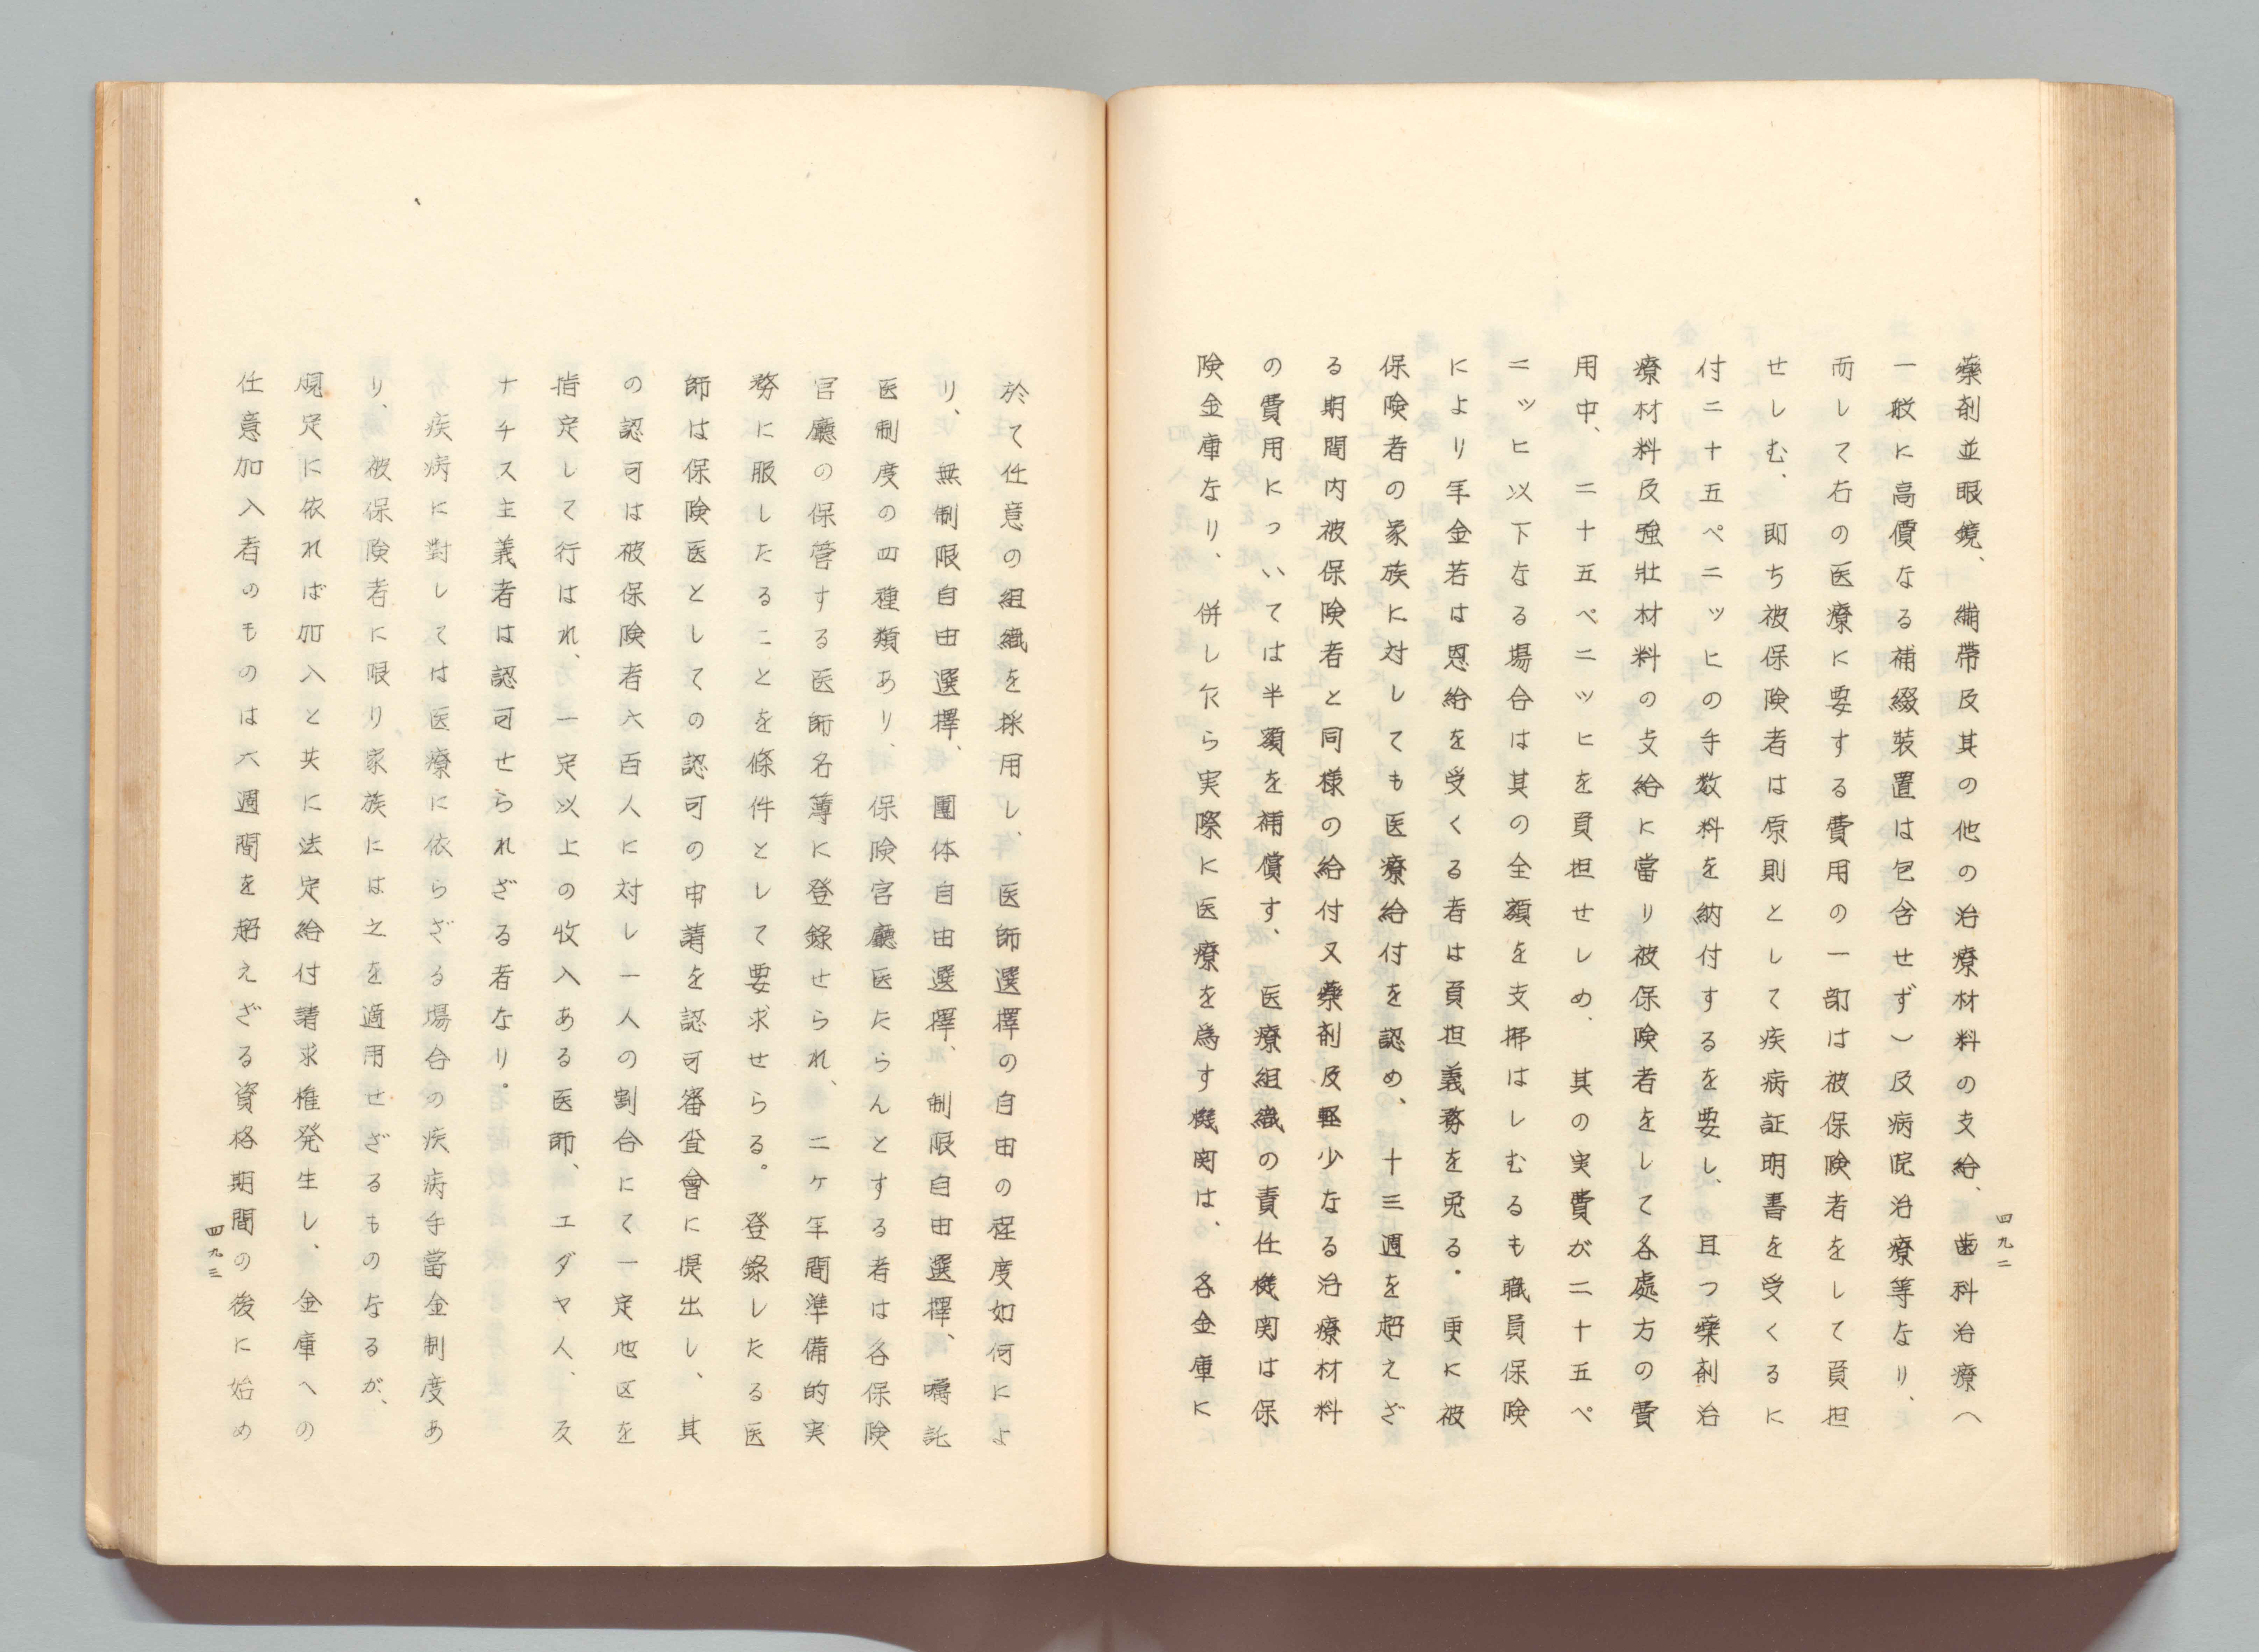 四九二
藥剤並眼鏡、繃帯及其の他の治療材料の支給、歯科治療（
一般に高價なる補綴装置は包含せず）及病院治療等なり、
而して右の医療に要する費用の一部は被保険者をして負担
せしむ、即ち被保険者は原則として疾病証明書を受くるに
付二十五ペニッヒの手数料を納付するを要し、且つ藥剤治
療材料及強壮材料の支給に當り被保険者をして各處方の費
用中、二十五ペニッヒを負担せしめ、其の実費が二十五ペ
ニッヒ以下なる場合は其の全額を支拂はしむるも職員保険
により年金若は恩給を受くる者は負担義務を免る。更に被
保険者の家族に対しても医療給付を認め、十三週を超えざ
る期間内被保険者と同様の給付又藥剤及軽少なる治療材料
の費用については半額を補償す、医療組織の責任機関は保
険金庫なり、併し乍ら実際に医療を為す機関は、各金庫に
於て任意の組織を採用し、医師選擇の自由の程度如何によ
り、無制限自由選擇、團体自由選擇、制限自由選擇、囑託
医制度の四種類あり、保険官廳医たらんとする者は各保険
官廳の保管する医師名簿に登錄せられ、二ケ年間準備的実
務に服したることを條件として要求せらる。登錄したる医
師は保険医としての認可の申請を認可審査會に提出し、其
の認可は被保険者六百人に対し一人の割合にて一定地区を
指定して行はれ、一定以上の收入ある医師、エダヤ人、及
ナチス主義者は認可せられざる者なり。
疾病に對しては医療に依らざる場合の疾病手當金制度あ
り、被保険者に限り家族には之を適用せざるものなるが、
規定に依れば加入と共に法定給付請求権発生し、金庫への
任意加入者のものは六週間を超えざる資格期間の後に始め
四九三